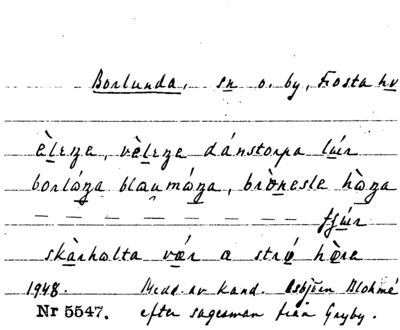 Borlunda, sn o. by, Frosta hd
èlɛŋe, vèlɛŋe dánstorpa lúr
borlóŋa blaumáŋa, brònesle hòŋa
— — — — — — — fjúr
skàrhalta vær a strø hòra
1948. Medd. av kand. Asbjörn Blohmé
Nr 5547. efter sagesman från Gryby.